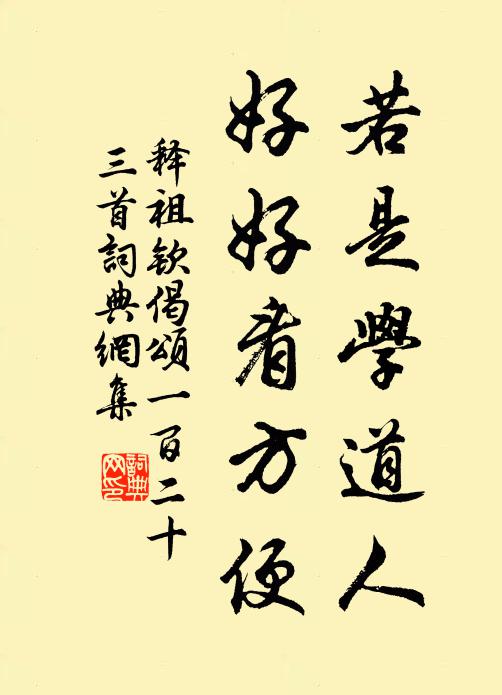 若是學道人
好好看方便
释祖欽偈頌一百二十
三首詞典網集
詞典网印